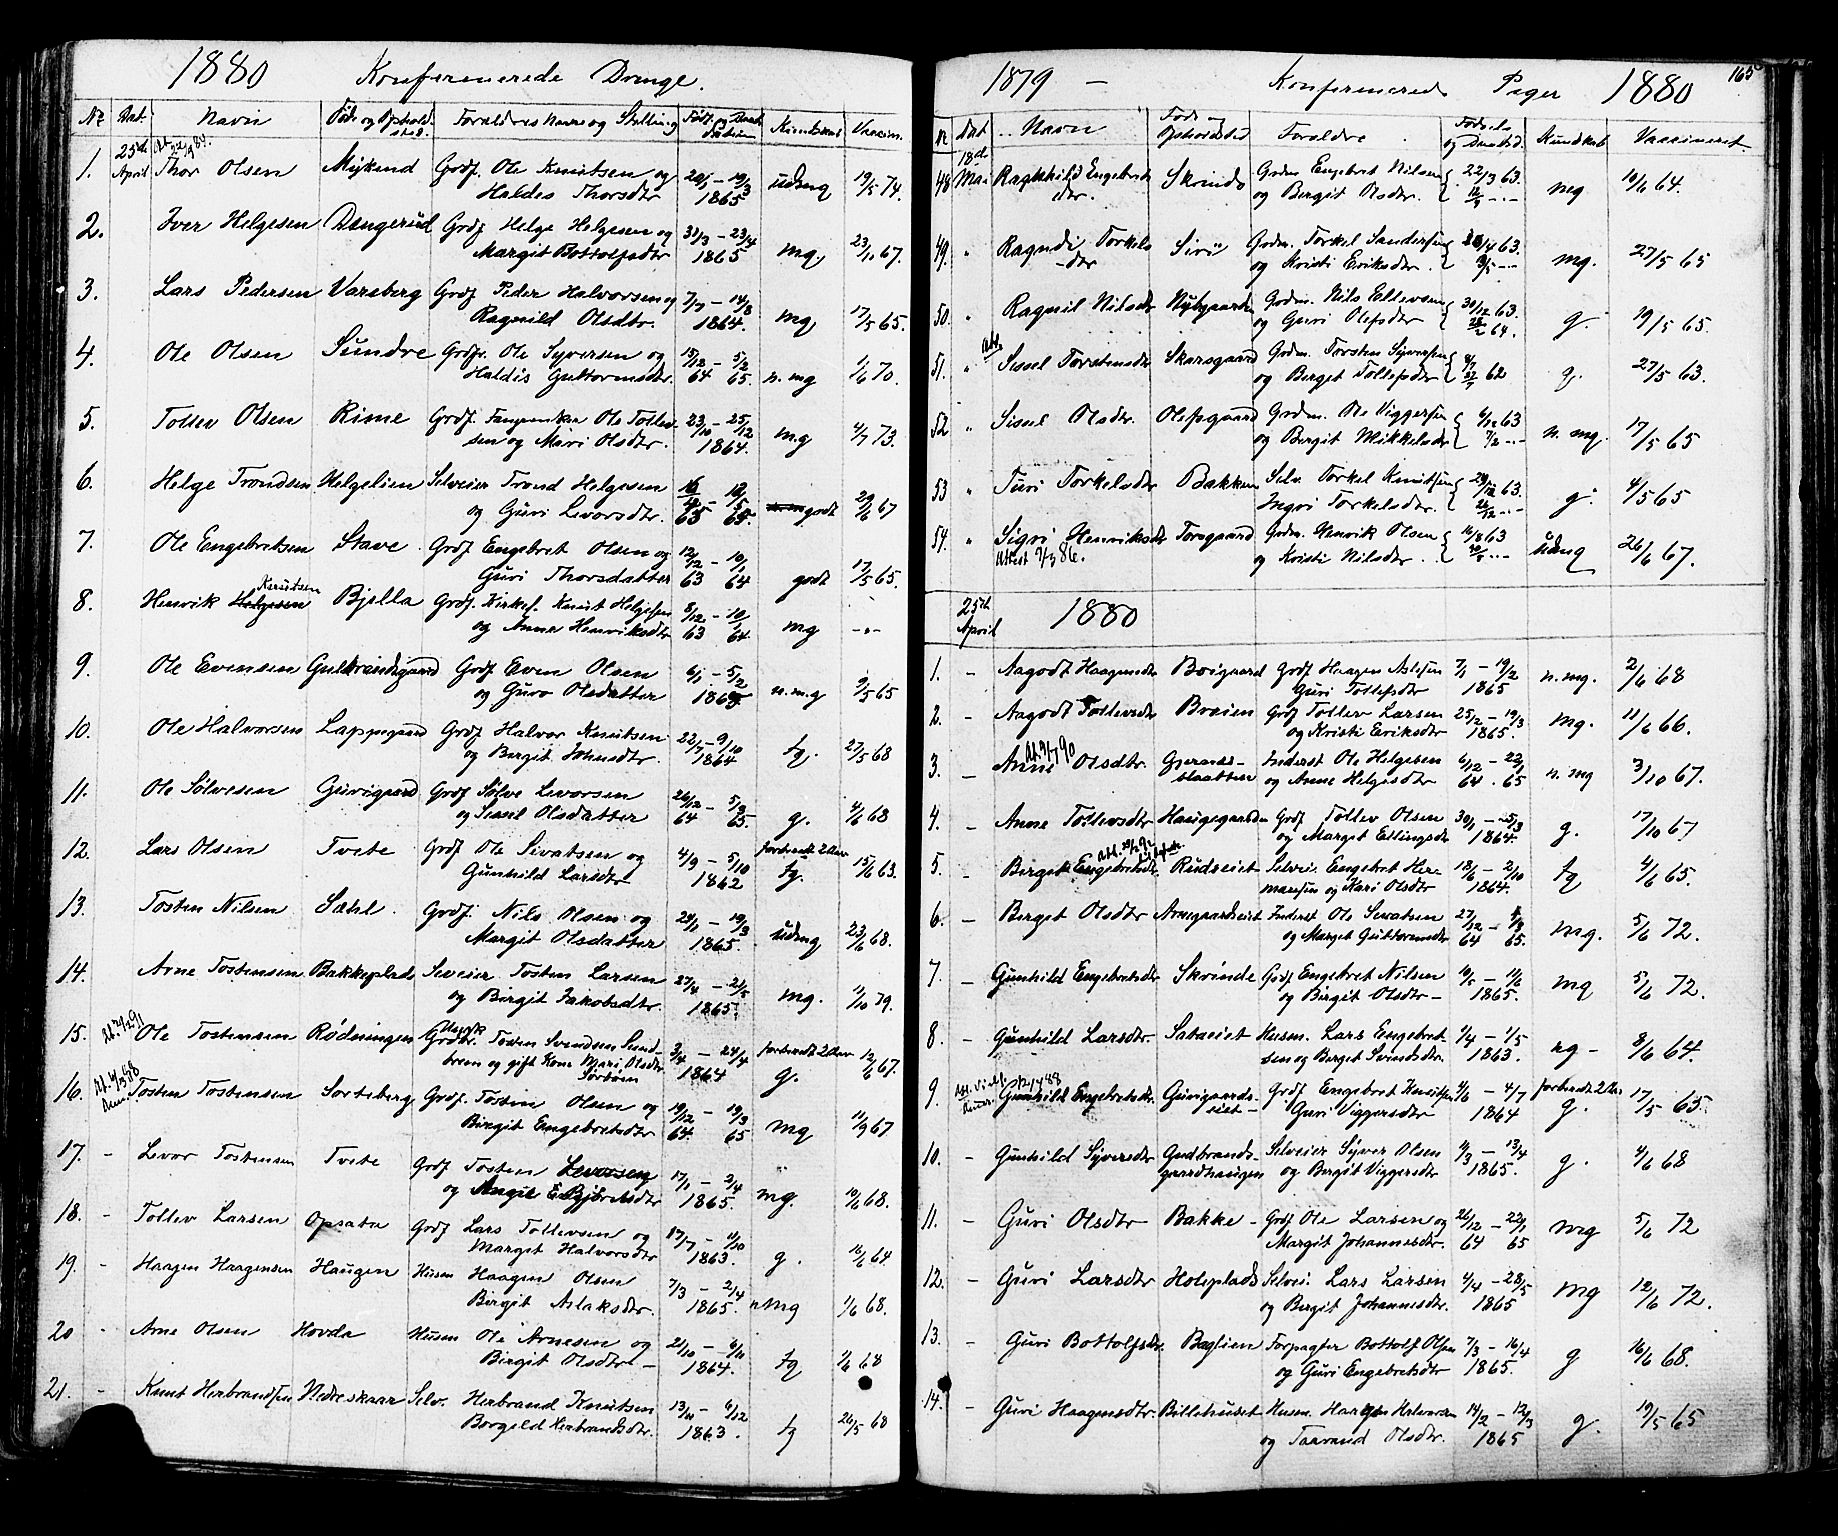 1880 Konfirmerede Drenge.
No Dat. Navn Føde og Opholdssted. Forældres Navn og Stilling Føds. og Daabsdatum Kundskab Vaccin.
1. 25de April Thor Olsen Mykend Grdf. Ole Knutsen og udmg 19/5 74.
Haldis Thorsdtr 1865
2. Iver Helgesen Dengerud Grdf Helge Helgesen og 31/3 – 23/4
Margit Bottolfsdtr 1865 mg. 23/10 67.
3. Lars Pedersen Varaberg Grdf Peder Halvorsen og 7/7 – 14/8
Ragnild Olsdtr. 1864. mg 17/5 65.
4. Ole Olsen Sundre Grdf. Ole Syversen og 15/12 – 5/2
Haldis Guttormsdtr. 64 65. n. mg 1/6 70.
5. Tollev Olsen Rime Grdf. Ole Tollev- 23/10 – 25/12
sen og Mari Olsdtr. 1864. mg 4/7 73.
6. Helge Trondsen Helgelien Selveier Trond Helgesen
og Guri Levorsdtr. 63 65. godt 29/6 67
7. Ole Engebretsen Stave Grdf Engebret Olsen og 12/12 – 10/1
Guri Thorsdatter 63 64 godt 17/5 65.
8. Henrik Helgesen Knutsen Bjella Grdf. Kirkes. Knut Helgesen 5/12 – 10/1
og Anne Henriksdtr 63 64. mg –"–
9. Ole Evensen Gulbrandsgaard Grdf Even Olsen 6/1 – 5/2
og Guro Olsdatter 1865 n.mg 9/5 65
10. Ole Halvorsen Lappegaard Grdf Halvor Knutsen 22/7 – 9/10
og Birgit Johnsdtr. 1864 tg. 27/5 68
11. Ole Sølvesen Gurigaard Grdf Sølve Levorsen 26/12 – 5/3
og Sissel Olsdatter 64 65. g. 4/6 68
12. Lars Olsen Tvete Grdf Ole Sivatsen og 4/9 – 5/10 forberedt 2 Aar 15/6 63.
Gunhild Larsdtr 1862 tg.
13. Tosten Nilsen Sæhl Grdf. Nils Olsen og 24/1 – 19/3
Margit Olsdatter 1865. udmg 23/6 68.
14. Arne Tostensen Bakkeplads Seveier Tosten Larsen 27/4 – 2/5
og Birgit Jakobsdtr. 1865. mg. 11/10 79.
15. Ole Tostensen Rødningen Tosten Svendsen Sund- 2/4 – 24/4 forberedt 2 Aar 12/6 67.
breen og gift Kone Mari Olsdtr 1864 g.
16. Tosten Tostensen Sorteberg Grdf. Tosten Olsen og 19/12 – 19/3
Birgit Engebretsdtr 64. 65 mg 11/9 67
17. – Levor Tostensen Tvete Grdf Tosten Levorsen 17/1 – 2/4
og Engebretsdtr 1865. mg. 10/6 68.
18. – Tollev Larsen Opsata Grdf Lars Tollevsen og 17/7 – 11/10
Margit Halvorsdtr 1863. g. 16/6 64.
19. – Haagen Haagensen Haugen Husm Haagen Olsen 7/3 – 2/4
Birgit Aslaksdtr. 1865. mg 1/6 68.
20 – Arne Olsen Hovda Husm Ole Arnesen og 21/10 – 6/11
Birgit Olsdtr – 1864. tg 68
21. – Knut Herbrandsen Nedreskaar Selv. Herbrand Knutsen 13/11 – 6/12
Borgild Herbrandsdtr. 1863. tg 26/5 68
165
1879 – Konfirmerede Piger 1880
Nr Dat Navn Føde og Opholdssted Forældre Fødsels og Daabsd. Kundskab Vaccineret.
48 18de Mai Ragnhild Engebrets- Skrinde Grdm Engebret Nilsen 22/3 63.
dtr. og Birgit Olsdtr. mg 10/6 64.
49. " Ragndi Torkels Sire Grdm. Torkel Sandersen
-dtr og Kristi Eriksdtr. mg. 27/5 65
50. " Ragnil Nilsdtr Nybgaarden Grdm. Nils Ellevsen 30/12 63.
og Guri Olefsdtr 64. g. 19/5 65.
51. " Sissel Torstensdtr Skarsgaard Grdm. Torsten Syversen
og Birget Tollefsdtr 62 g. 27/5 63.
52 " Sissel Olsdtr. Olefsgaard Grdm. Ole Viggersen 6/12 63
og Birgit Mikkelsdtr n. mg. 17/5 65
53 " Turi Torkelsdtr Bakken Selv. Torkel Knutsen 63.
Ingri Torkelsdtr. g. 4/5 65
54. " Sigri Henriksdtr Torsgaard Grdm. Henrik Olsen 16/8 63
Attest 7/3 86. og Kristi Nilsdtr. udmg 26/6 67.
25de April 1880
1. – Aagodt Haagensdtr Boigaard Grdf Haagen Aslesen 7/1 – 19/2
Guri Tollefsdtr 1865 n. mg. 2/6 68
2. – Aagodt Tollevsdtr Breien Grdf Tollev Larsen 25/2 – 19/3
og Kristi Eriksdtr 1865. mg. 11/6 66.
3. – Anne Olsdtr. Inderst Ole Helgesen 6/12 – 22/1
og Anne Helgesdtr 64. 65 n. mg 3/10 67.
4. – Anne Tollevsdtr Haugegaarden Grdf Tollev Olsen 30/1 – 25/3
og Marget Ellingsdtr 1864. g. 17/10 67
5. – Birget Engebretsdtr Rudseiet Selvei. Engebret Her- 18/6 – 2/10
mansen og Kari Olsdtr 1864. tg 4/6 65.
6. – Birget Olsdtr Arnegaardseiet Inderst Ole Sivatsen
og Marget Guttormsdtr 64 65. mg. 5/6 72.
7. – Gunhild Engebretsdtr Skrinde Grdf Engebret Nilsen 10/5 – 11/6
og Birgit Olsdtr – 1865. mg 5/6 72.
8. – Gunhild Larsdtr. Sataeiet Husm. Lars Engebret- 1/4 – 1/5
sen og Birget Svendsdtr. 1863. ng – 8/6 64.
9. – Gunhild Engebretsdtr Gurigaards- Grdf Engebret Knutsen 4/6 – 4/7 forberedt 2 Aar 17/5 65.
eiet – Guri Viggersdtr 1864 g.
10. – Gunhild Syversdtr Gudbrands- Selveier Syver Olsen 11/3 – 13/4
gaardhaugen og Birgit Viggersdtr 1865. g. 4/6 68
11. – Guri Olsdtr Bakke – Grdf Ole Larsen og 26/12 – 22/1
Margit Johannesdtr. 64 65 mg 5/6 72
12. – Guri Larsdtr Holeplads Selvei. Lars Larsen 4/4 – 28/5
og Birgit Johannesdtr. 1865 mg 12/6 72.
13. – Guri Bottolfsdtr. Baglien Forpagter Bottolf Olsen 7/3 – 16/4
og Guri Engebretsdtr 1865. g 16/6 68.
14. – Guri Haagensdtr. Billehuset Husm. Haagen Halvorsen 14/2 – 12/3
og Taarand Olsdtr. 1865 g. 19/5 65